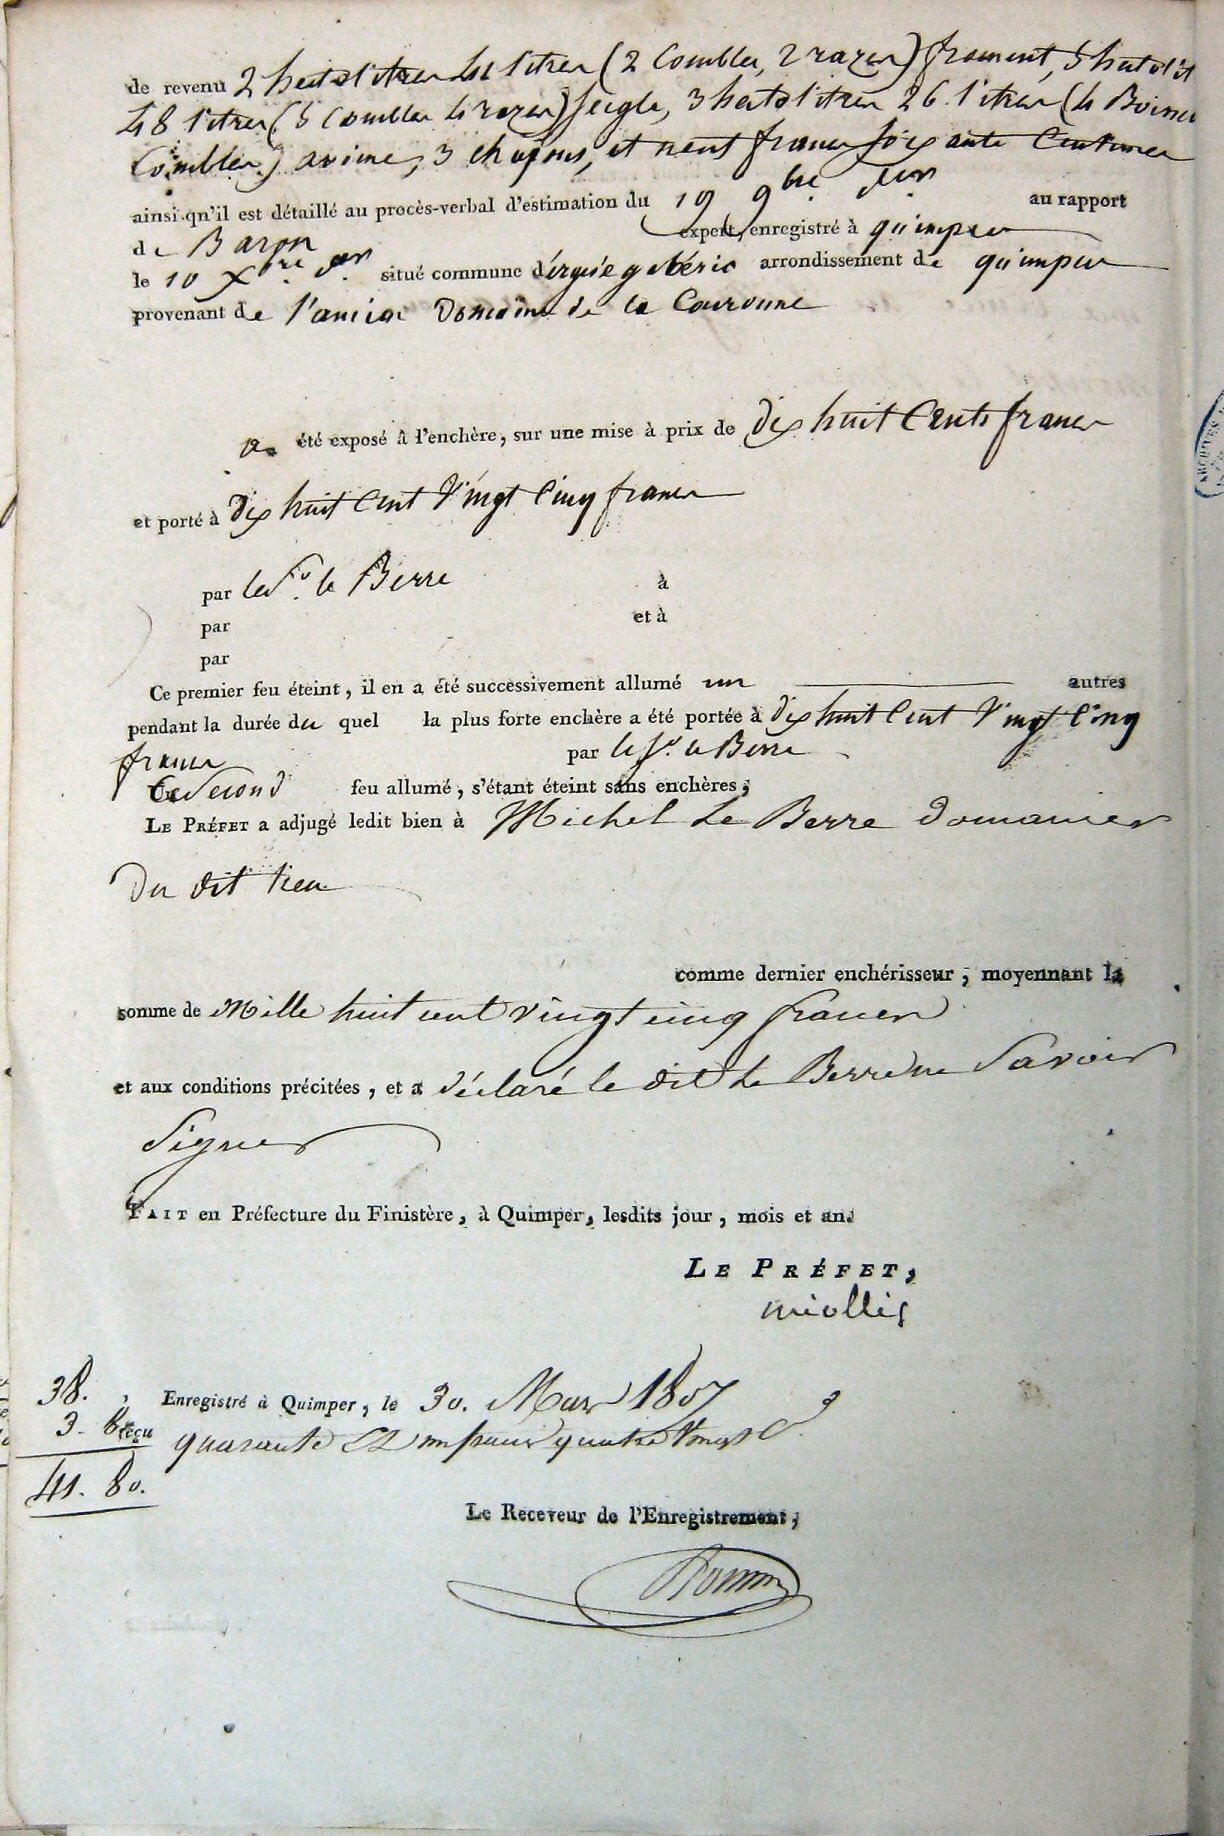 de revenu 2 hectolitres 41 litres (2 Combles, 2 razes) froment, 5 hectolit
48 litres (5 Combles 4 razes) seigle, 3 hectolitres 26 litres (4 Boisseaux
Combles) avoine, 3 chapons, et neuf francs soixante Centimes
ainsi qu'il est détaillé au procès-verbal d'estimation du 19 9bre dern au rapport
de Baron expert, enregistré à quimper
le 10 Xbre der situé commune d'ergué gabéric arrondissement de quimper
provenant de l'ancien Domaine de la Couronne
a été exposé à l'enchère, sur une mise à prix de dix huit Cents francs
et porté à dix huit Cent Vingt Cinq francs
par led. Sr. le Berre à
par et à
par
Ce premier feu éteint, il en a été successivement allumé un autres
pendant la durée du quel la plus forte enchère a été portée à dix huit Cent Vingt Cinq
francs par le Sr. le Berre
Ce second feu allumé, s'étant éteint sans enchères,
LE PRÉFET a adjugé ledit bien à Michel Le Berre Domanier
Du dit lieu
comme dernier enchérisseur, moyennant la
somme de Mille huit cent vingt cinq francs
et aux conditions précitées, et a déclaré le dit Le Berre ne Savoir
Signer
FAIT en Préfecture du Finistère, à Quimper, lesdits jour, mois et an.
LE PRÉFET,
miollis
38. Enregistré à Quimper, le 30. Mars 1807
3. 8 reçu quarante Et un francs quatre Vingt C.
41. 80.
Le Receveur de l'Enregistrement,
ARCHIVES